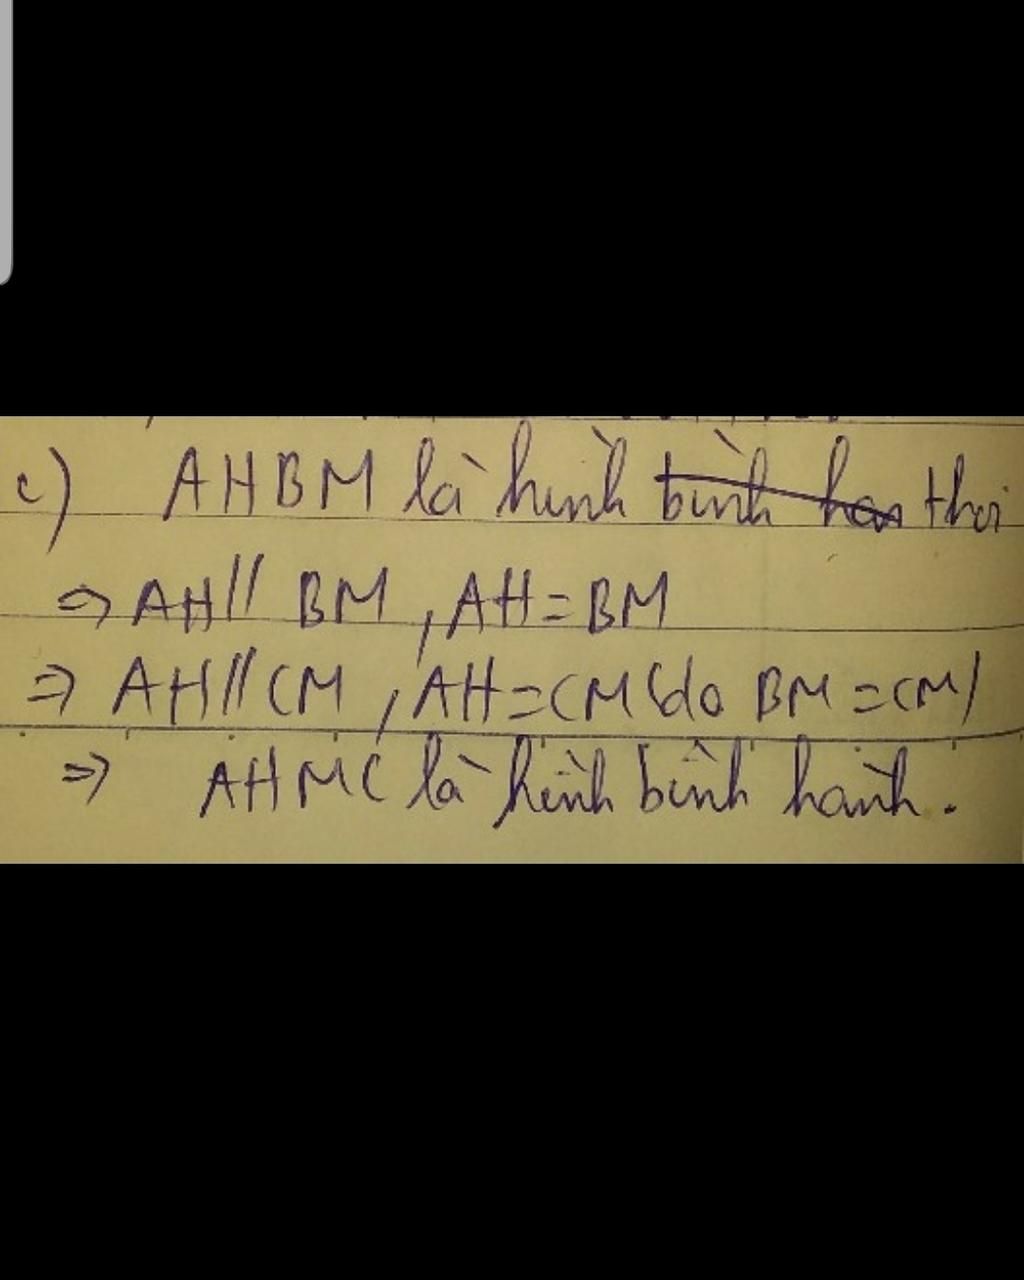 c) AHBM là hình bình han thoi
=> AH // BM, AH = BM
=> AH // CM, AH = CM (do BM = CM)
=> AHMC là hình bình hành.